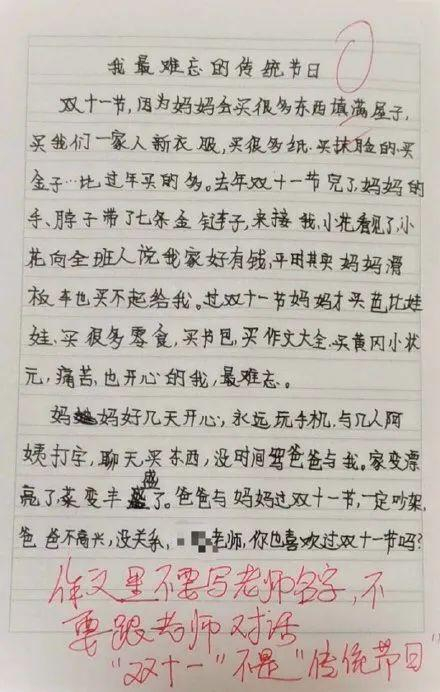 我最难忘的传统节日
双十一节,因为妈妈会买很多东西填满屋子,
买我们一家人新衣服,买很多纸.买抹脸的.买
金子…比过年买的多。去年双十一节完了,妈妈的
手、脖子带了七条金链子,来接我,小花看见了,小
花向全班人说我家好有钱,平时其实妈妈滑
板车也买不起给我。过双十一节妈妈才买芭比娃
娃、买很多零食,买书包,买作文大全、买黄冈小状
元,痛苦,也开心的我,最难忘。
妈妈好几天开心,永远玩手机.与几人阿
姨打字,聊天,买东西,没时间骂爸爸与我。家变漂
亮了,菜变丰盛了。爸爸与妈妈过双十一节,一定吵架,
爸爸不高兴,没关系,老师,你也喜欢过双十一节吗?
作文里不要写老师名字,不
要跟老师对话
"双十一"不是"传统节日"